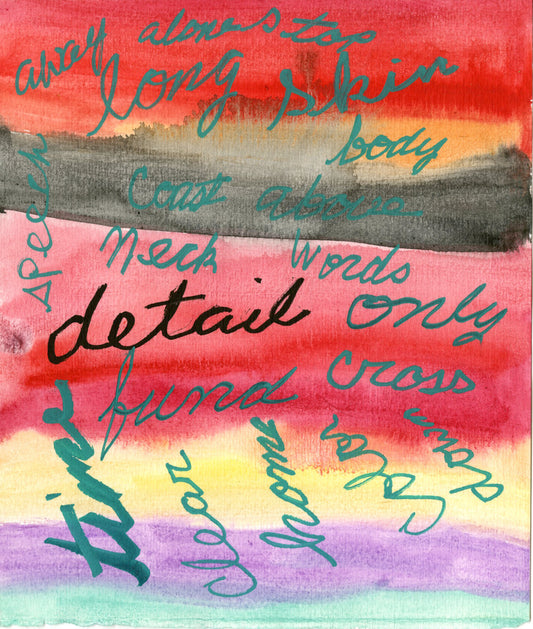 away alones top
long skin
body
speech
coast above
neck words
detail only
fund cross
time
clear
home
color
down